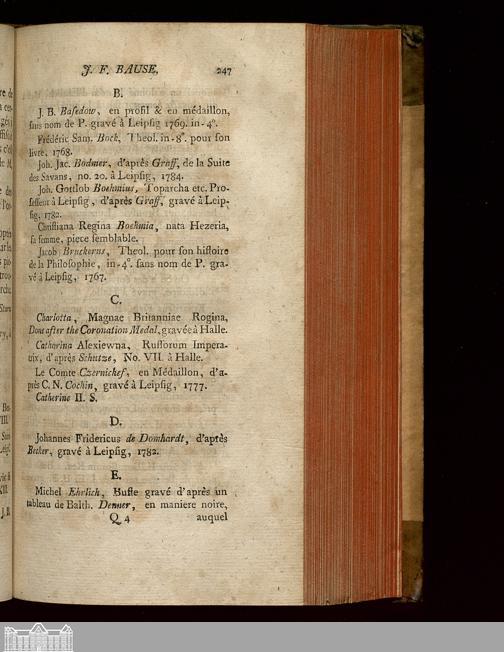 J. F. BAUSE. 247
B.
J. B. Baſedow, en profil & en médaillon,
ſans nom de P. gravé à Leipſig 1769. in-4°.
Frédéric Sam. Bock, Theol. in-8°. pour ſon
livre, 1768.
Joh. Jac. Bodmer, d'après Graff, de la Suite
des Savans, no. 20. à Leipſig, 1784.
Joh. Gottlob Boehmius, Toparcha etc. Pro-
feſſeur à Leipſig, d'après Graff, gravé à Leip-
ſig, 1782.
Chriſtiana Regina Boehmia, nata Hezeria,
ſa femme, piece ſemblable.
Jacob Bruckerus, Theol. pour ſon hiſtoire
de la Philoſophie, in-4°. ſans nom de P. gra-
vé à Leipſig, 1767.
C.
Charlotta, Magnae Britanniae Regina,
Done after the Coronation Medal, gravée à Halle.
Catharina Alexiewna, Ruſſorum Impera-
trix, d'après Schutze, No. VII. à Halle.
Le Comte Czernichef, en Médaillon, d'a-
près C. N. Cochin, gravé à Leipſig, 1777.
Catherine II. S.
D.
Johannes Fridericus de Domhardt, d'après
Becker, gravé à Leipſig, 1782.
E.
Michel Ehrlich, Buſte gravé d'après un
tableau de Balth. Denner, en maniere noire,
Q 4 auquel